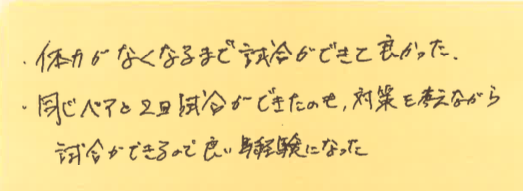 ・体力がなくなるまで試合ができて良かった.
・同じペアと2回試合ができたのも,対策を考えながら
試合ができるので良い経験になった